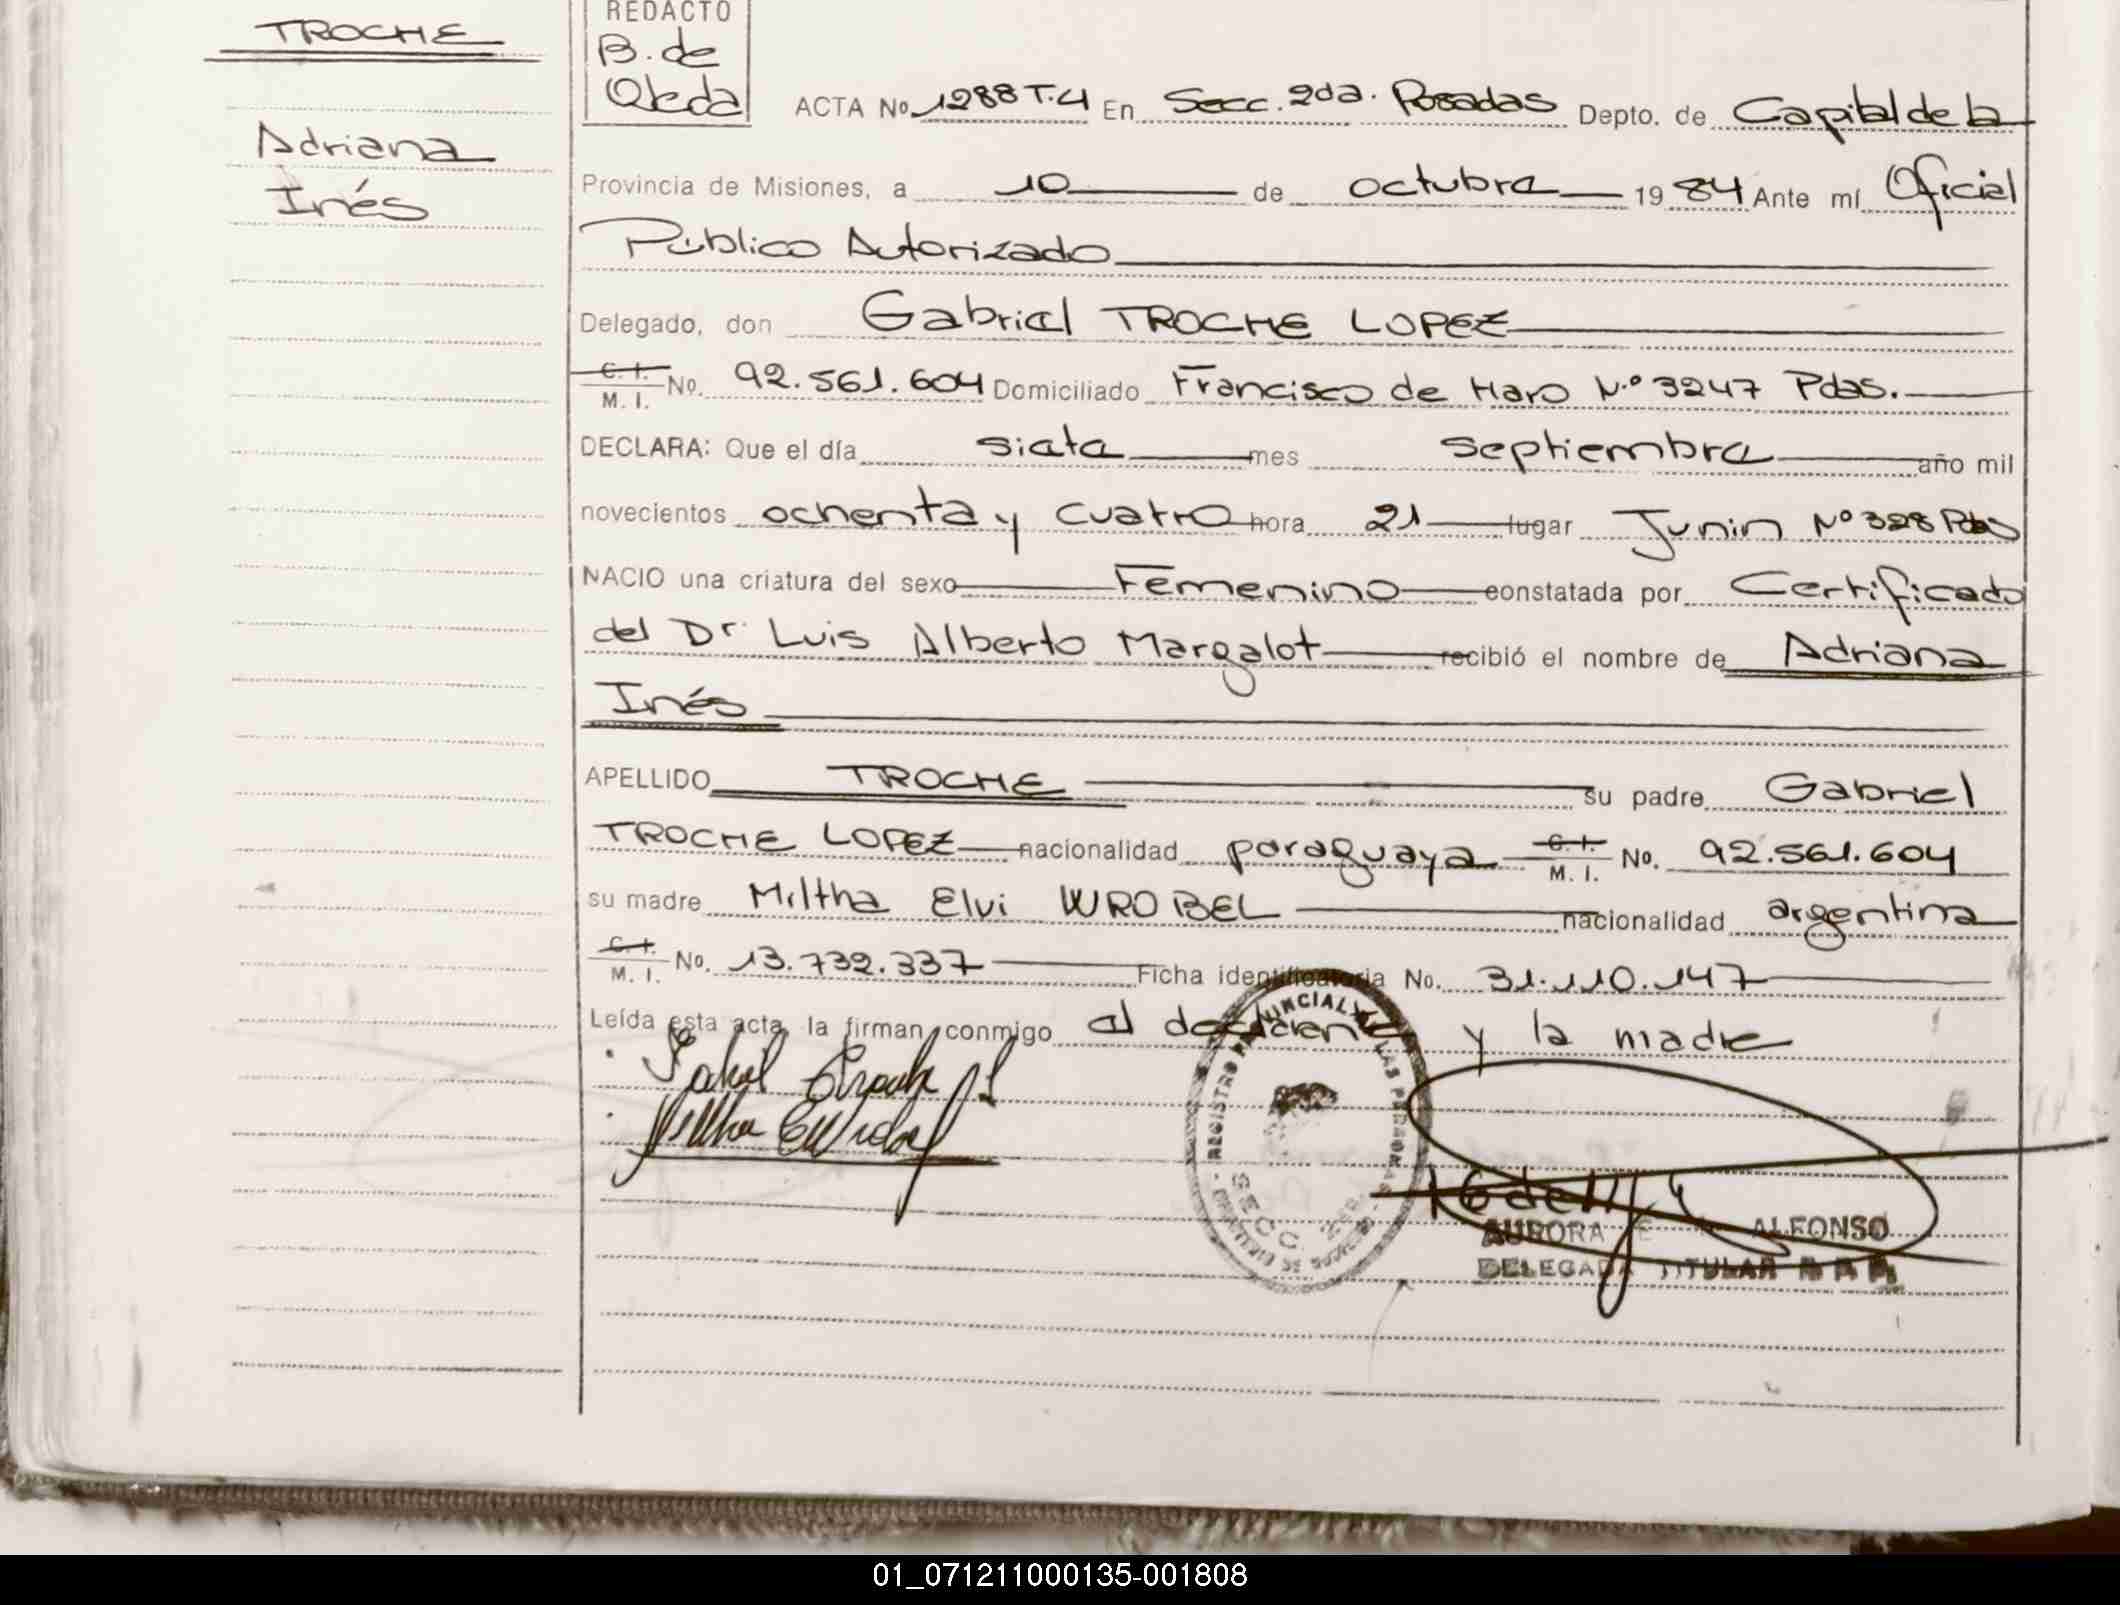 TROCHE
Adriana
Inés
REDACTO
B. de
Ojeda
ACTA No. 1288 T.4 En Secc. 2da. Posadas Depto. de Capital de la
Provincia de Misiones, a 10 de octubre 1984 Ante mí Oficial
Público Autorizado
Delegado, don Gabriel TROCHE LOPEZ
C. I.
M. I. No. 92.561.604 Domiciliado Francisco de Haro N.º 3247 Pdas.
DECLARA: Que el día siete mes septiembre año mil
novecientos ochenta y cuatro hora 21 lugar Junin Nº 328 Pdas
NACIO una criatura del sexo Femenino constatada por Certificado
del Dr. Luis Alberto Margalot recibió el nombre de Adriana
Inés
APELLIDO TROCHE su padre Gabriel
TROCHE LOPEZ nacionalidad paraguaya C. I. M. I. No. 92.561.604
su madre Miltha Elvi WROBEL nacionalidad argentina
C. I.
M. I. No. 13.732.337 Ficha identificatoria No. 31.110.147
Leída esta acta, la firman conmigo el declarante y la madre
REGISTRO PROVINCIAL DE LAS PERSONAS
SECC. 2da.
AURORA E ALFONSO
DELEGADA TITULAR
01_071211000135-001808